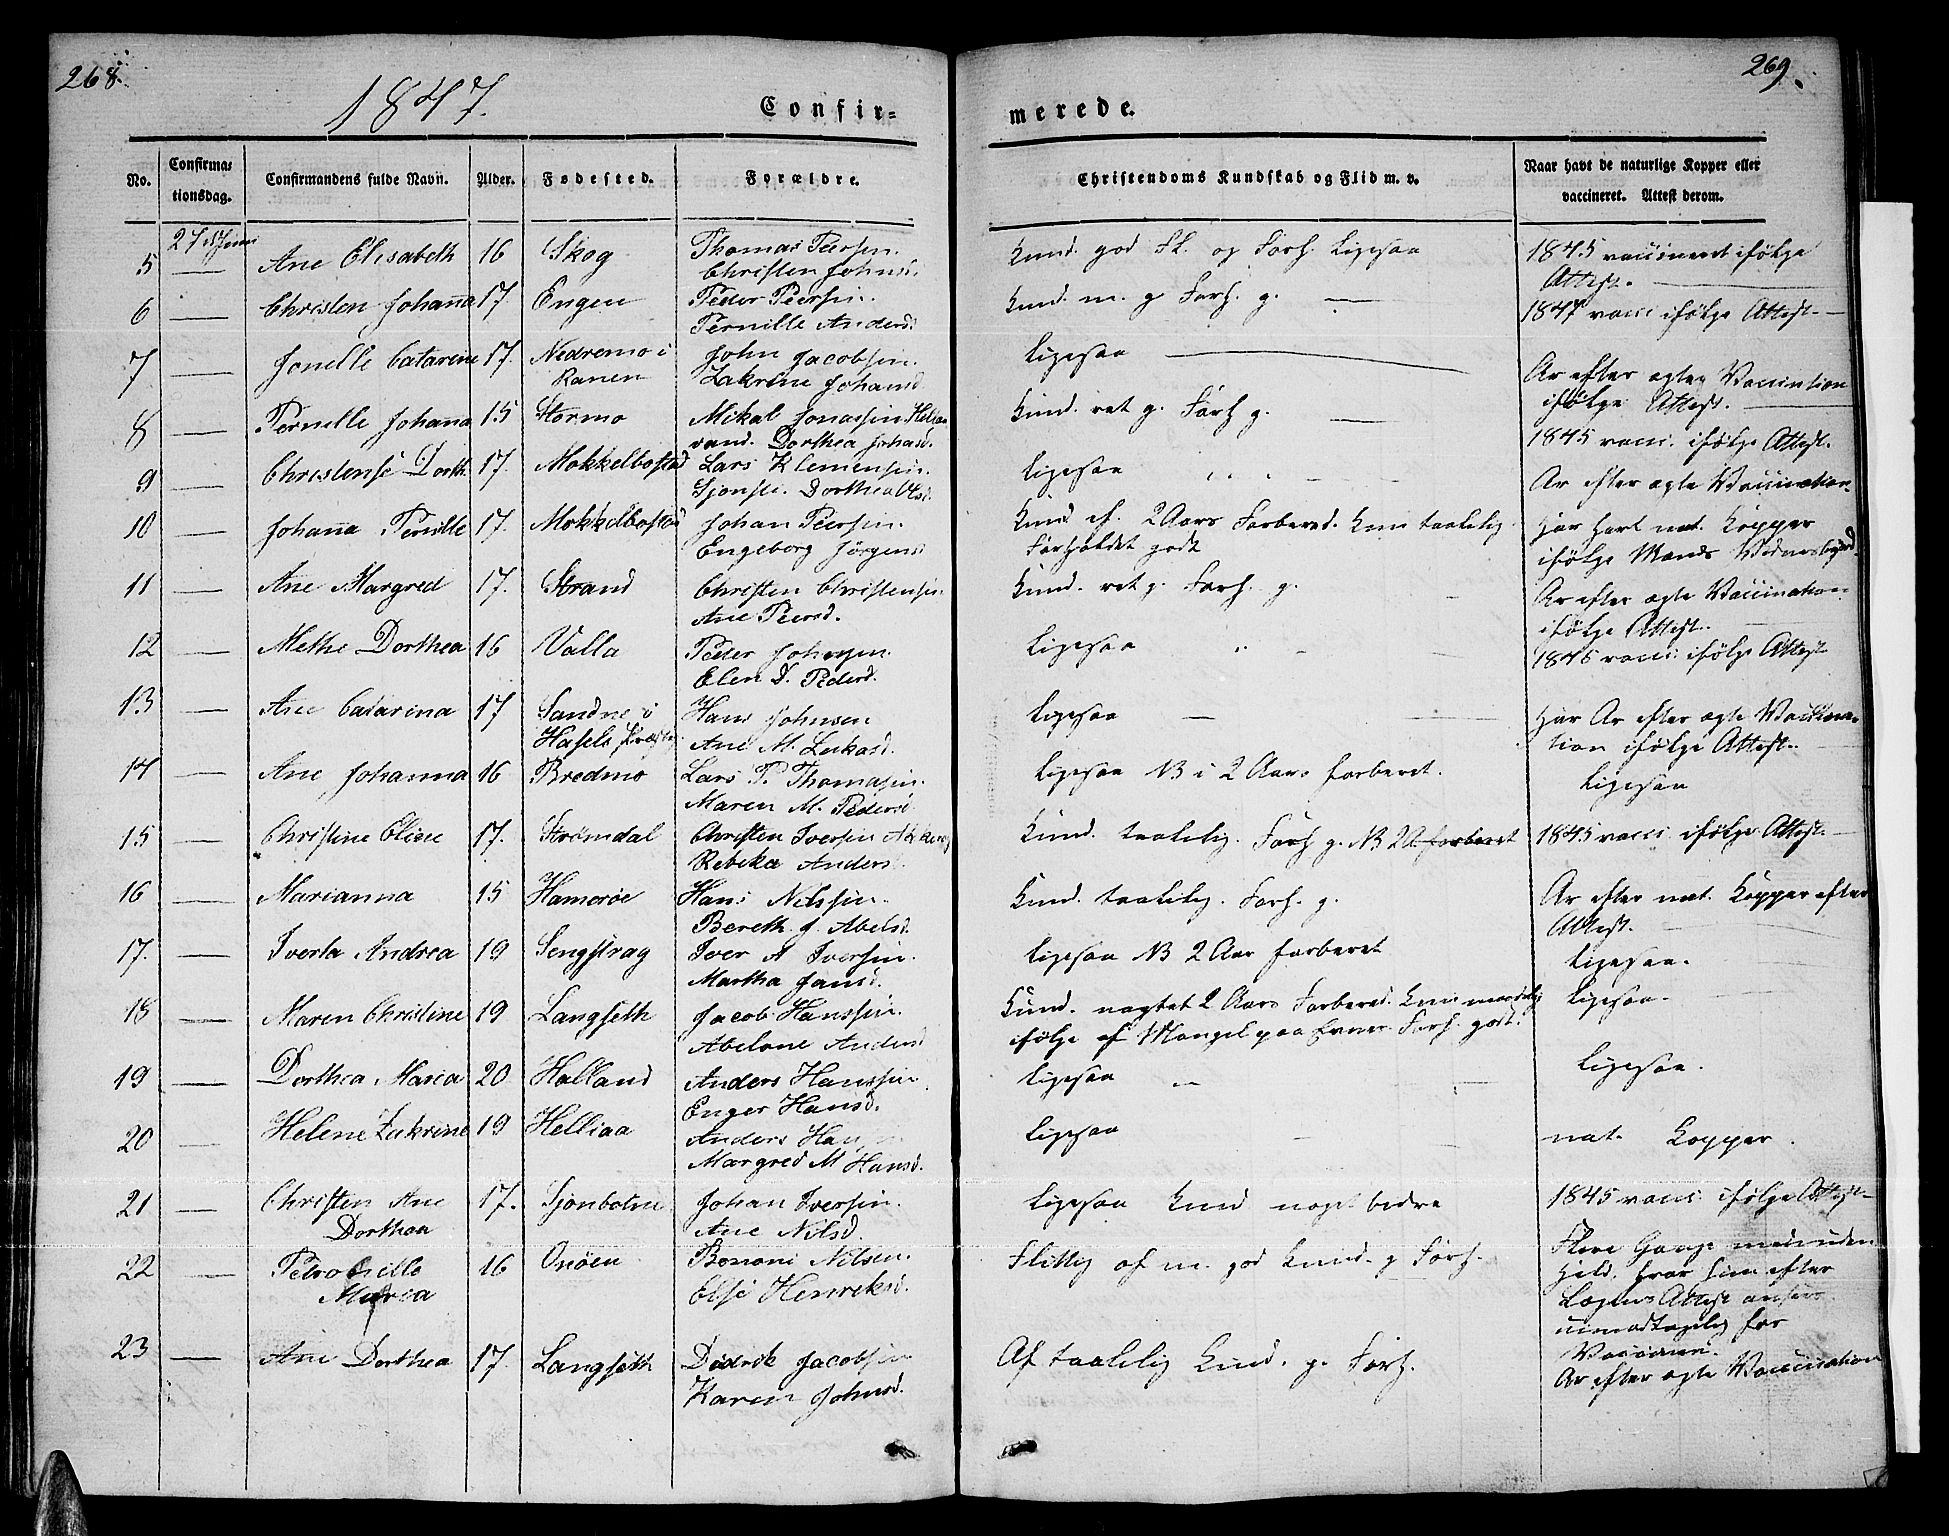 268.
1847.
Confir-
No.
Confirmationsdag.
Confirmandens fulde Navn.
Alder.
Fødested.
Forældre.
27 Juni
5 — Ane Elisabeth 16 Skog Thomas Peersen.
Christen Johnsd.
6 — Christen Johanna 17. Engen Peder Peersen.
Pernille Andersd
7 — Jonelle Catarine 17. Nedremo i John Jacobsen.
Ranen Zakrine Johansd
8 — Pernille Johanna 15 Stormo Mikal Jonassen
vand. Dorthea Johansd.
9 — Christense Dorth. 17. Mokkelbostad Lars Klemensen.
Dorthea Olsd.
10 — Johanna Pernille 17. Mokkelbostad Johan Peersen.
Engeborg Jørgensd
11 — Ane Margred 17. Strand Christen Christensen
Ane Peersd.
12 — Methe Dorthea 16 Valla Peder Johnsen.
Elen D. Pedersd.
13 — Ane Catarina 17 Sandne i Hans Johnsen
Hasels Ane M. Lukasd.
14 — Ane Johanna 16 Bredmo Lars P. Thomasen.
Maren M. Pedersd
15 — Christine Eline 17. Strømdal Christen Iversen
Rebeka Andersd
16 — Marianna 15 Hamerøe Hans Nilssen.
Bereth J. Abelsd.
17. — Iverta Andrea 19 Iver A Iversen.
Martha Jansd.
18 — Maren Christine 19 Langseth Jacob Hanssen.
Abelone Andersd
19 — Dorthea Maria 20 Halland Anders Hanssen
Enger Hansd.
20 — Helene Zakrine 19 Helliaa Anders
Margred M Hansd.
21 — Christen Ane 17. Sjonbotne Johan Iversen.
Dorthea Ane Nilsd.
22 — Petronille 16 Osøen Bonani Nilsen.
Maria Else Henreksd.
23 — Ane Dorthea 17. Langseth Didrik Jacobsen
Karen Johnsd.
269.
merede.
Christendoms Kundskab og Flid m. v.
Naar havt de naturlige Kopper eller
vaccineret. Attest derom.
Kund. god Fl. og Forh. Ligesaa 1845 vaccineret ifølge
Attest.
Kund. m. g Forh. g. — 1847 vacc ifølge Attest.
Ligesaa —
Ar efter ægte Vaccination
ifølge Attest.
Kund. ret g. Forh g.
1845 vacc. ifølge Attest.
Ligesaa Ar efter ægte Vaccination
Kund ef. 2 Aars Forbered. kun taalelig Har havt nat. Kopper
Forholdet godt ifølge Mands Vidnesbyrd
Kund. ret g. Forh. g. Ar efter ægte Vaccination
ifølge Attest.
Ligesaa 1845 vacc. ifølge Attest
Ligesaa — Har Ar efter ægte Vaccina-
tion ifølge Attest.
Ligesaa NB i 2 Aar forberet. Ligesaa
Kund. taalelig. Forh g. NB 2 A. forberet 1845 vacc ifølge Attest.
Kund. taalelig. Forh. g. Ar efter nat. Kopper efter
Attest.
Ligesaa NB 2 Aar forberet Ligesaa.
Kund. nagtet 2 Aars Forbered. kun maadelig Ligesaa.
ifølge af Mangel paa Evner Forh. godt.
Ligesaa Ligesaa.
Ligesaa nat. Kopper.
Ligesaa Kund noget bedre 1845 vacc. ifølge Attest
Flittig af m. god Kund. g Forh. Flere Gange men uden
Held, hvor hun efter
Lægens Attest ansees
uimodtagelig for
Vaccinen.
Af taalelig Kund. g. Forh. Ar efter ægte Vaccination